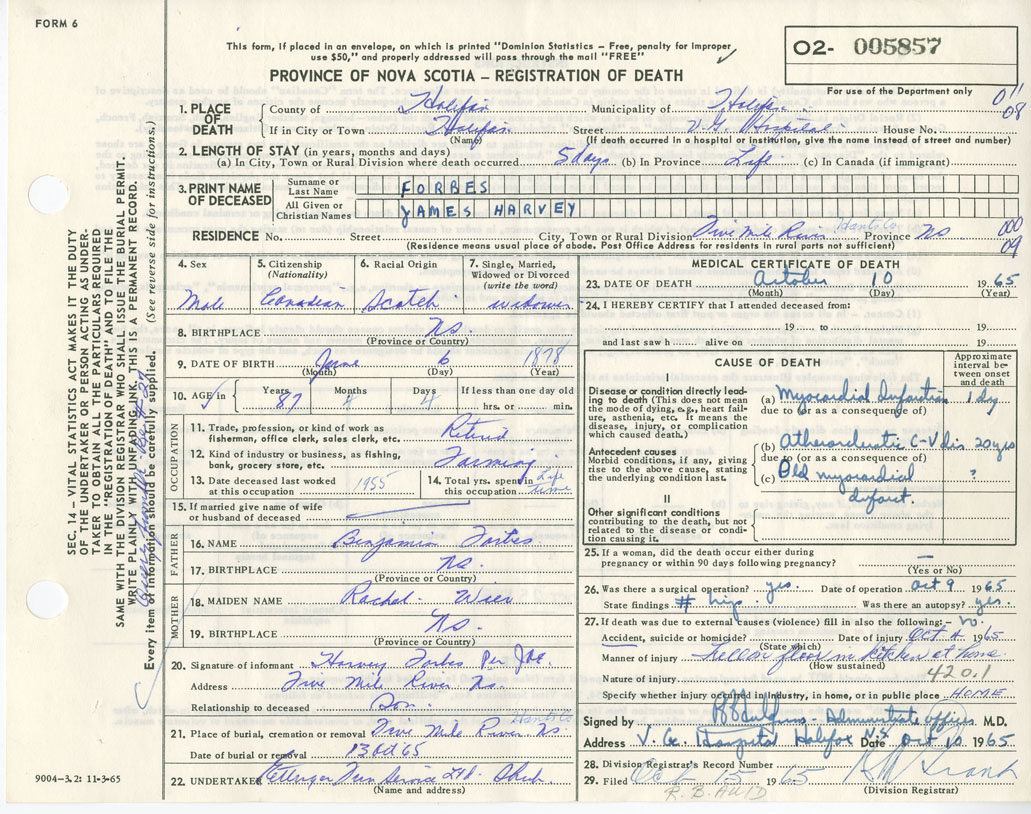 FORM 6
This form, if placed in an envelope, on which is printed "Dominion Statistics – Free, penalty for improper
use $50," and properly addressed will pass through the mail "FREE"
PROVINCE OF NOVA SCOTIA – REGISTRATION OF DEATH
O2- 005857
For use of the Department only
011
08
1. PLACE OF DEATH
County of Halifax Municipality of Halifax
If in City or Town Halifax Street V.G. Hospital House No.
(Name) (If death occurred in a hospital or institution, give the name instead of street and number)
2. LENGTH OF STAY (in years, months and days)
(a) In City, Town or Rural Division where death occurred 5 days (b) In Province Life (c) In Canada (if immigrant)
3. PRINT NAME OF DECEASED
Surname or Last Name FORBES
All Given or Christian Names JAMES HARVEY
RESIDENCE No. Street City, Town or Rural Division Five Mile River Hants Co Province NS
(Residence means usual place of abode. Post Office Address for residents in rural parts not sufficient)
000
09
4. Sex
Male
5. Citizenship (Nationality)
Canadian
6. Racial Origin
Scotch
7. Single, Married, Widowed or Divorced (write the word)
widower
8. BIRTHPLACE NS.
(Province or Country)
9. DATE OF BIRTH June 6 1878
(Month) (Day) (Year)
10. AGE in Years Months Days If less than one day old
87 4 4 hrs. or min.
OCCUPATION
11. Trade, profession, or kind of work as fisherman, office clerk, sales clerk, etc. Retired
12. Kind of industry or business, as fishing, bank, grocery store, etc. Farming
13. Date deceased last worked at this occupation 1955
14. Total yrs. spent in this occupation Life time
15. If married give name of wife or husband of deceased
FATHER
16. NAME Benjamin Forbes
17. BIRTHPLACE NS.
(Province or Country)
MOTHER
18. MAIDEN NAME Rachel Wier
19. BIRTHPLACE NS.
(Province or Country)
20. Signature of informant Harvey Forbes Per
Address Five Mile River NS.
Relationship to deceased Son.
21. Place of burial, cremation or removal Five Mile River NS. Hants Co
Date of burial or removal 13 Oct 65
22. UNDERTAKER Ettinger Fun Service Ltd. Shub
(Name and address)
MEDICAL CERTIFICATE OF DEATH
23. DATE OF DEATH October 10 19 65
(Month) (Day) (Year)
24. I HEREBY CERTIFY that I attended deceased from:
19 to 19
and last saw h alive on 19
CAUSE OF DEATH
Approximate interval between onset and death
I
Disease or condition directly leading to death (This does not mean the mode of dying, e.g., heart failure, asthenia, etc. It means the disease, injury, or complication which caused death.)
(a) Myocardial Infarction 1 day
due to (or as a consequence of)
Antecedent causes
Morbid conditions, if any, giving rise to the above cause, stating the underlying condition last.
(b) C-V dis. 20 yes
due to (or as a consequence of)
(c) Old myocardial infarct. ?
II
Other significant conditions
contributing to the death, but not related to the disease or condition causing it.
25. If a woman, did the death occur either during pregnancy or within 90 days following pregnancy? –
(Yes or No)
26. Was there a surgical operation? yes. Date of operation Oct 9 19 65
State findings # hip. Was there an autopsy? yes.
27. If death was due to external causes (violence) fill in also the following:– No.
Accident, suicide or homicide? Date of injury Oct 4 1965
(State which)
Manner of injury fell on floor in kitchen at home.
(How sustained)
Nature of injury 420.1
Specify whether injury occurred in industry, in home, or in public place HOME
Signed by - Administrative Officer M.D.
Address V.G. Hospital Halifax N.S. Date Oct 10 1965
28. Division Registrar's Record Number
29. Filed Oct 15 1965
(Division Registrar)
SEC. 14 – VITAL STATISTICS ACT MAKES IT THE DUTY
OF THE UNDERTAKER OR PERSON ACTING AS UNDER-
TAKER TO OBTAIN ALL THE PARTICULARS REQUIRED
IN THE "REGISTRATION OF DEATH" AND TO FILE THE
SAME WITH THE DIVISION REGISTRAR WHO SHALL ISSUE THE BURIAL PERMIT.
WRITE PLAINLY WITH UNFADING INK. THIS IS A PERMANENT RECORD.
Every item of information should be carefully supplied. (See reverse side for instructions.)
9004-3.2: 11-3-65